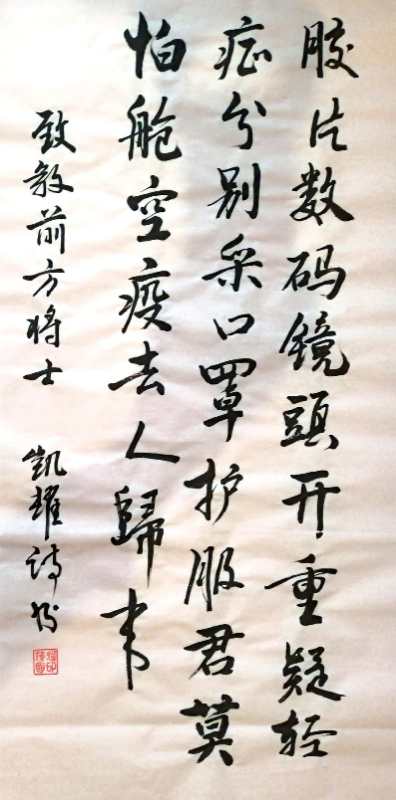 胶片数码镜頭开重疑轻
症分别采口罩护服君莫
怕舱空疫去人歸来
致敬前方将士 凱耀诗书